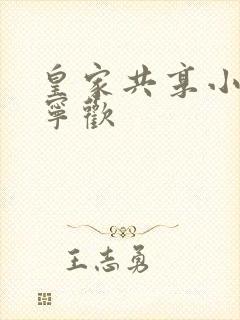 皇家共享小
寧歡
王志勇